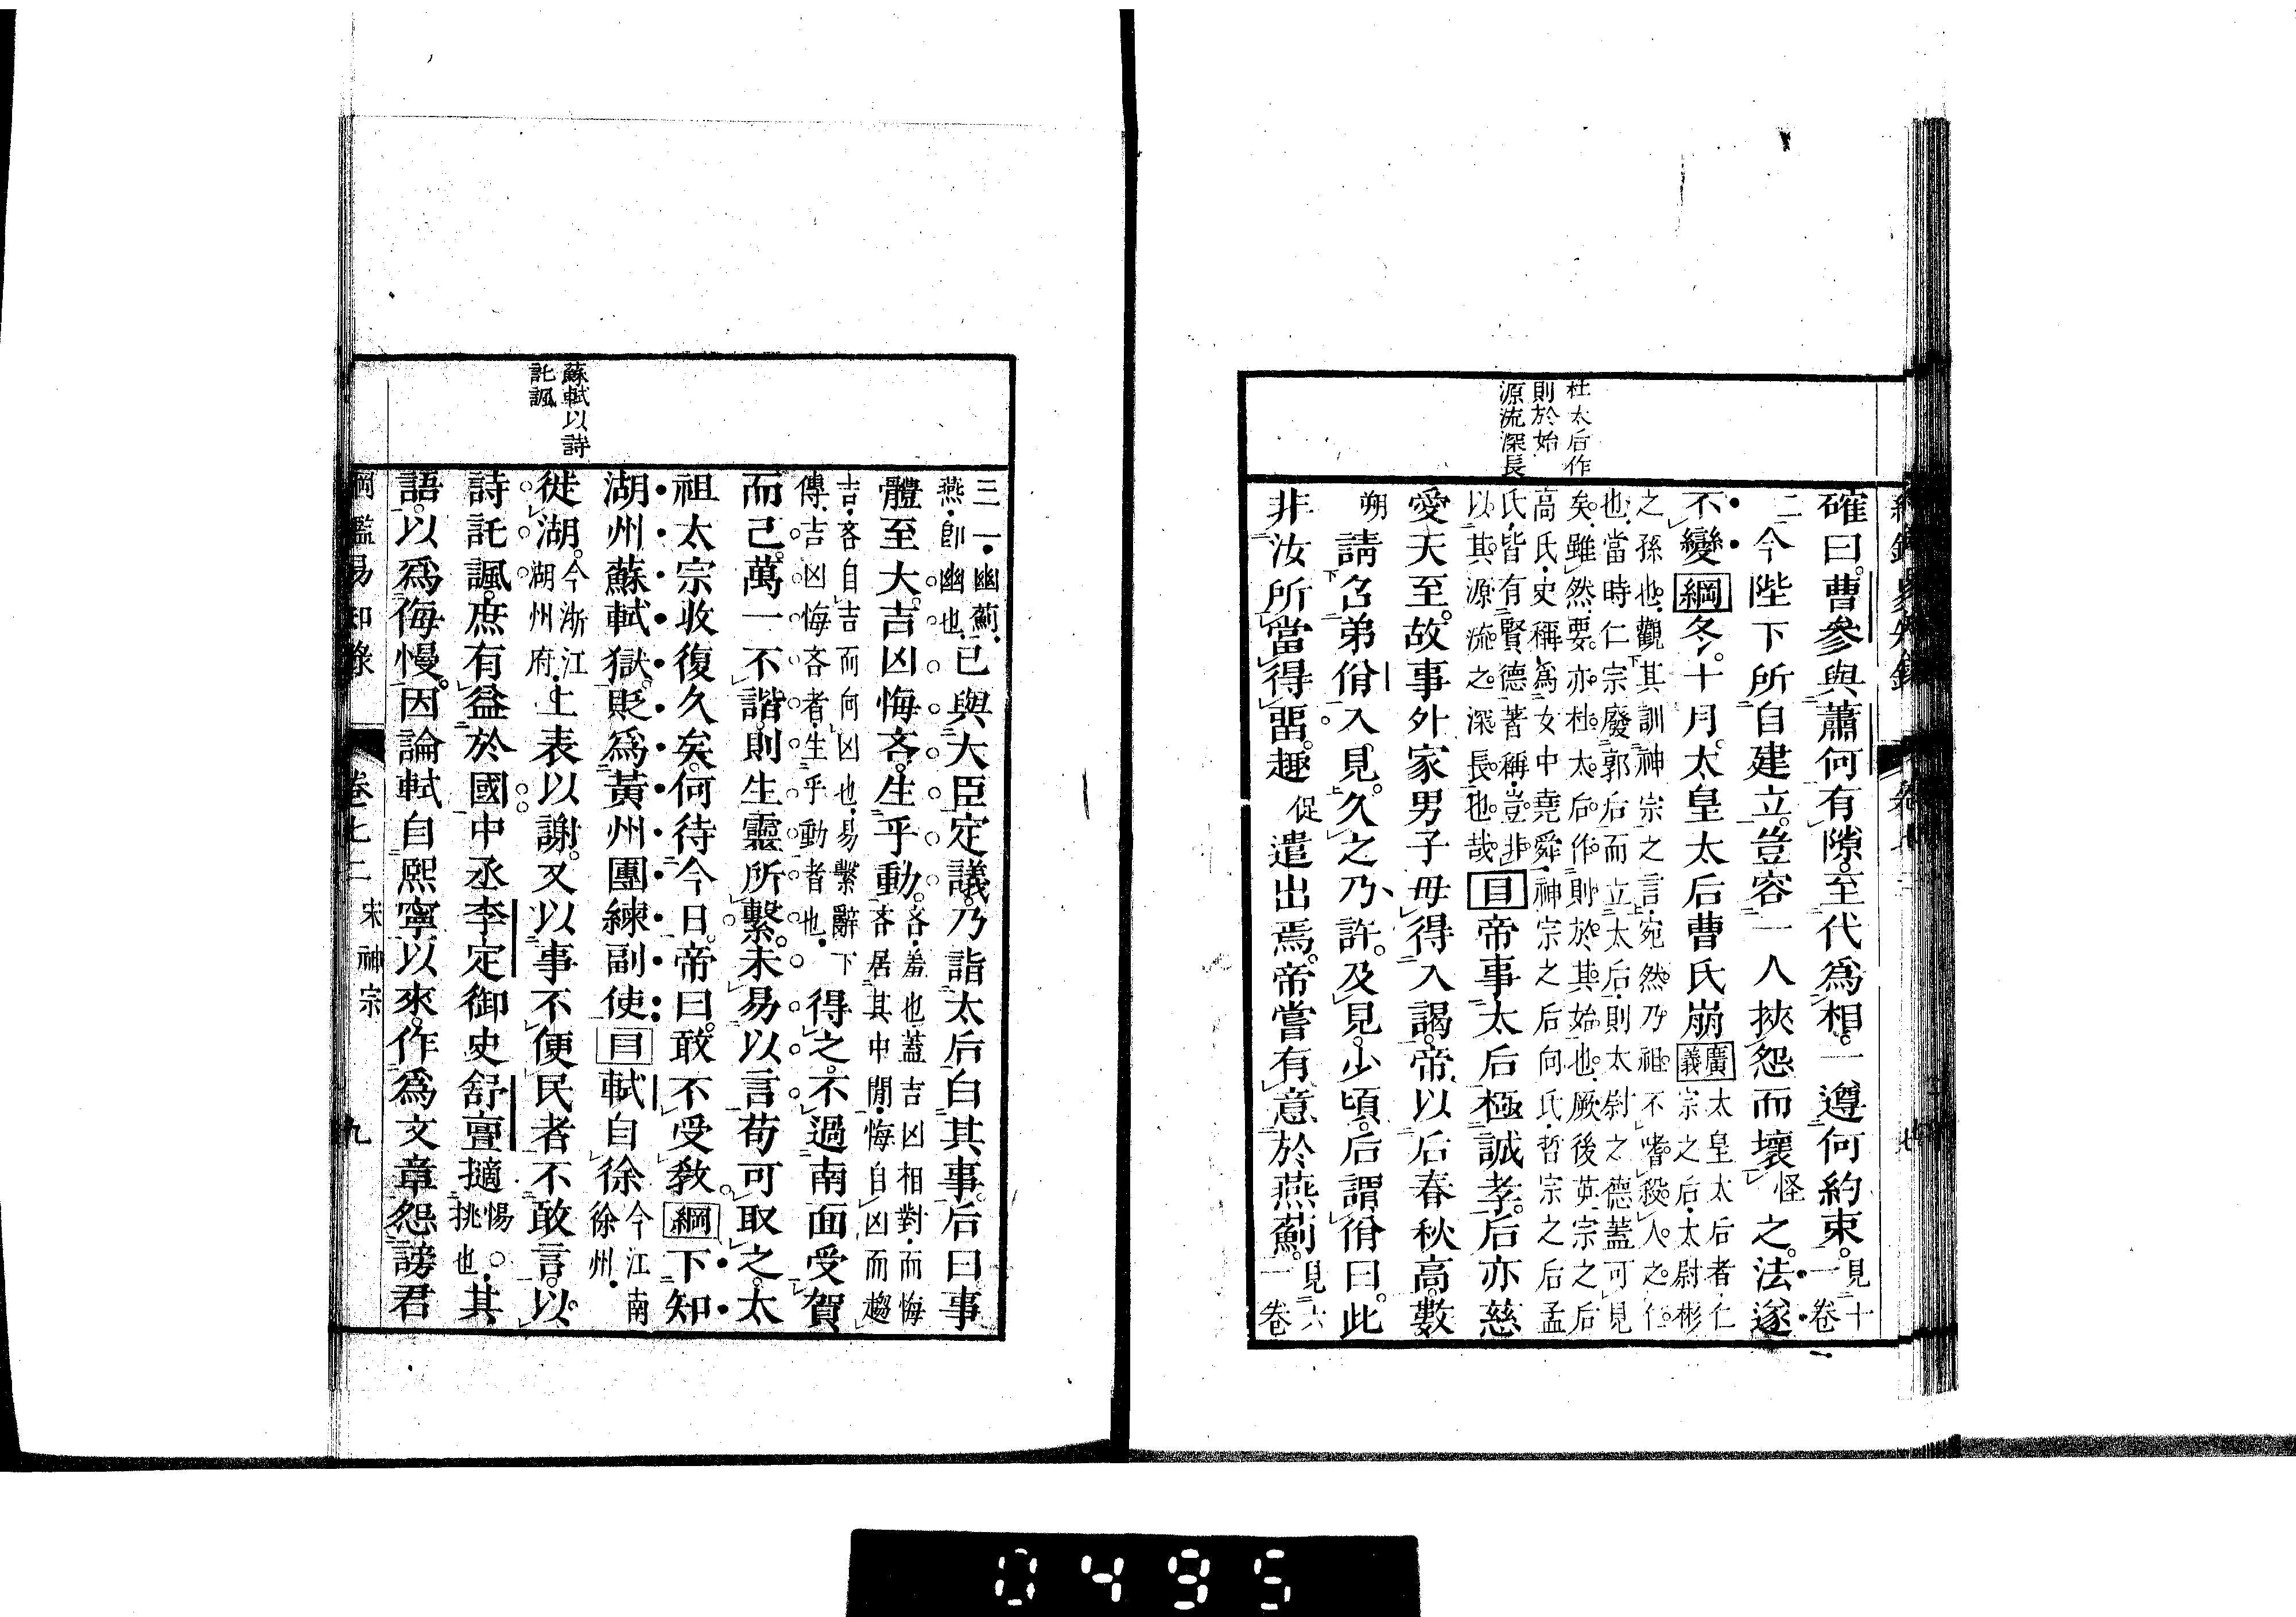 杜太后作
則於始
源流深長
確曰曹參與蕭何有隙至代爲相一遵何約束見十一卷
二今陛下所自建立豈容一人挾怨而壞怪之法遂
不變綱冬十月太皇太后曹氏崩廣義太皇太后者仁宗之后太尉彬
之孫也觀其訓神宗之言宛然乃祖不嗜殺人之仁
也當時仁宗廢郭后而立太后則太尉之德蓋可見
矣雖然要亦杜太后作則於其始也厥後英宗之后
高氏史稱爲女中堯舜神宗之后向氏哲宗之后孟
氏皆有賢德著稱豈非
以其源流之深長也哉目帝事太后極誠孝后亦慈
愛天至故事外家男子毋得入謁帝以后春秋高數
朔請召弟佾入見久之乃許及見少頃后謂佾曰此
非汝所當得畱趣促遣出焉帝嘗有意於燕薊見六卷一
三一幽薊
燕卽幽也已與大臣定議乃詣太后白其事后曰事
體至大吉凶悔吝生乎動吝羞也蓋吉凶相對而悔吝居其中閒悔自凶而趨
吉吝自吉而向凶也易繫辭下
傳吉凶悔吝者生乎動者也得之不過南面受賀
而已萬一不諧則生靈所繫未易以言苟可取之太
祖太宗收復久矣何待今日帝曰敢不受敎綱下知
湖州蘇軾獄貶爲黃州團練副使目軾自徐今江南徐州
徙湖今浙江湖州府上表以謝又以事不便民者不敢言以
詩託諷庶有益於國中丞李定御史舒亶擿惕挑也其
語以爲侮慢因論軾自熙寧以來作爲文章怨謗君
蘇軾以詩
託諷
綱鑑易知錄 卷七二 宋神宗 九
0495